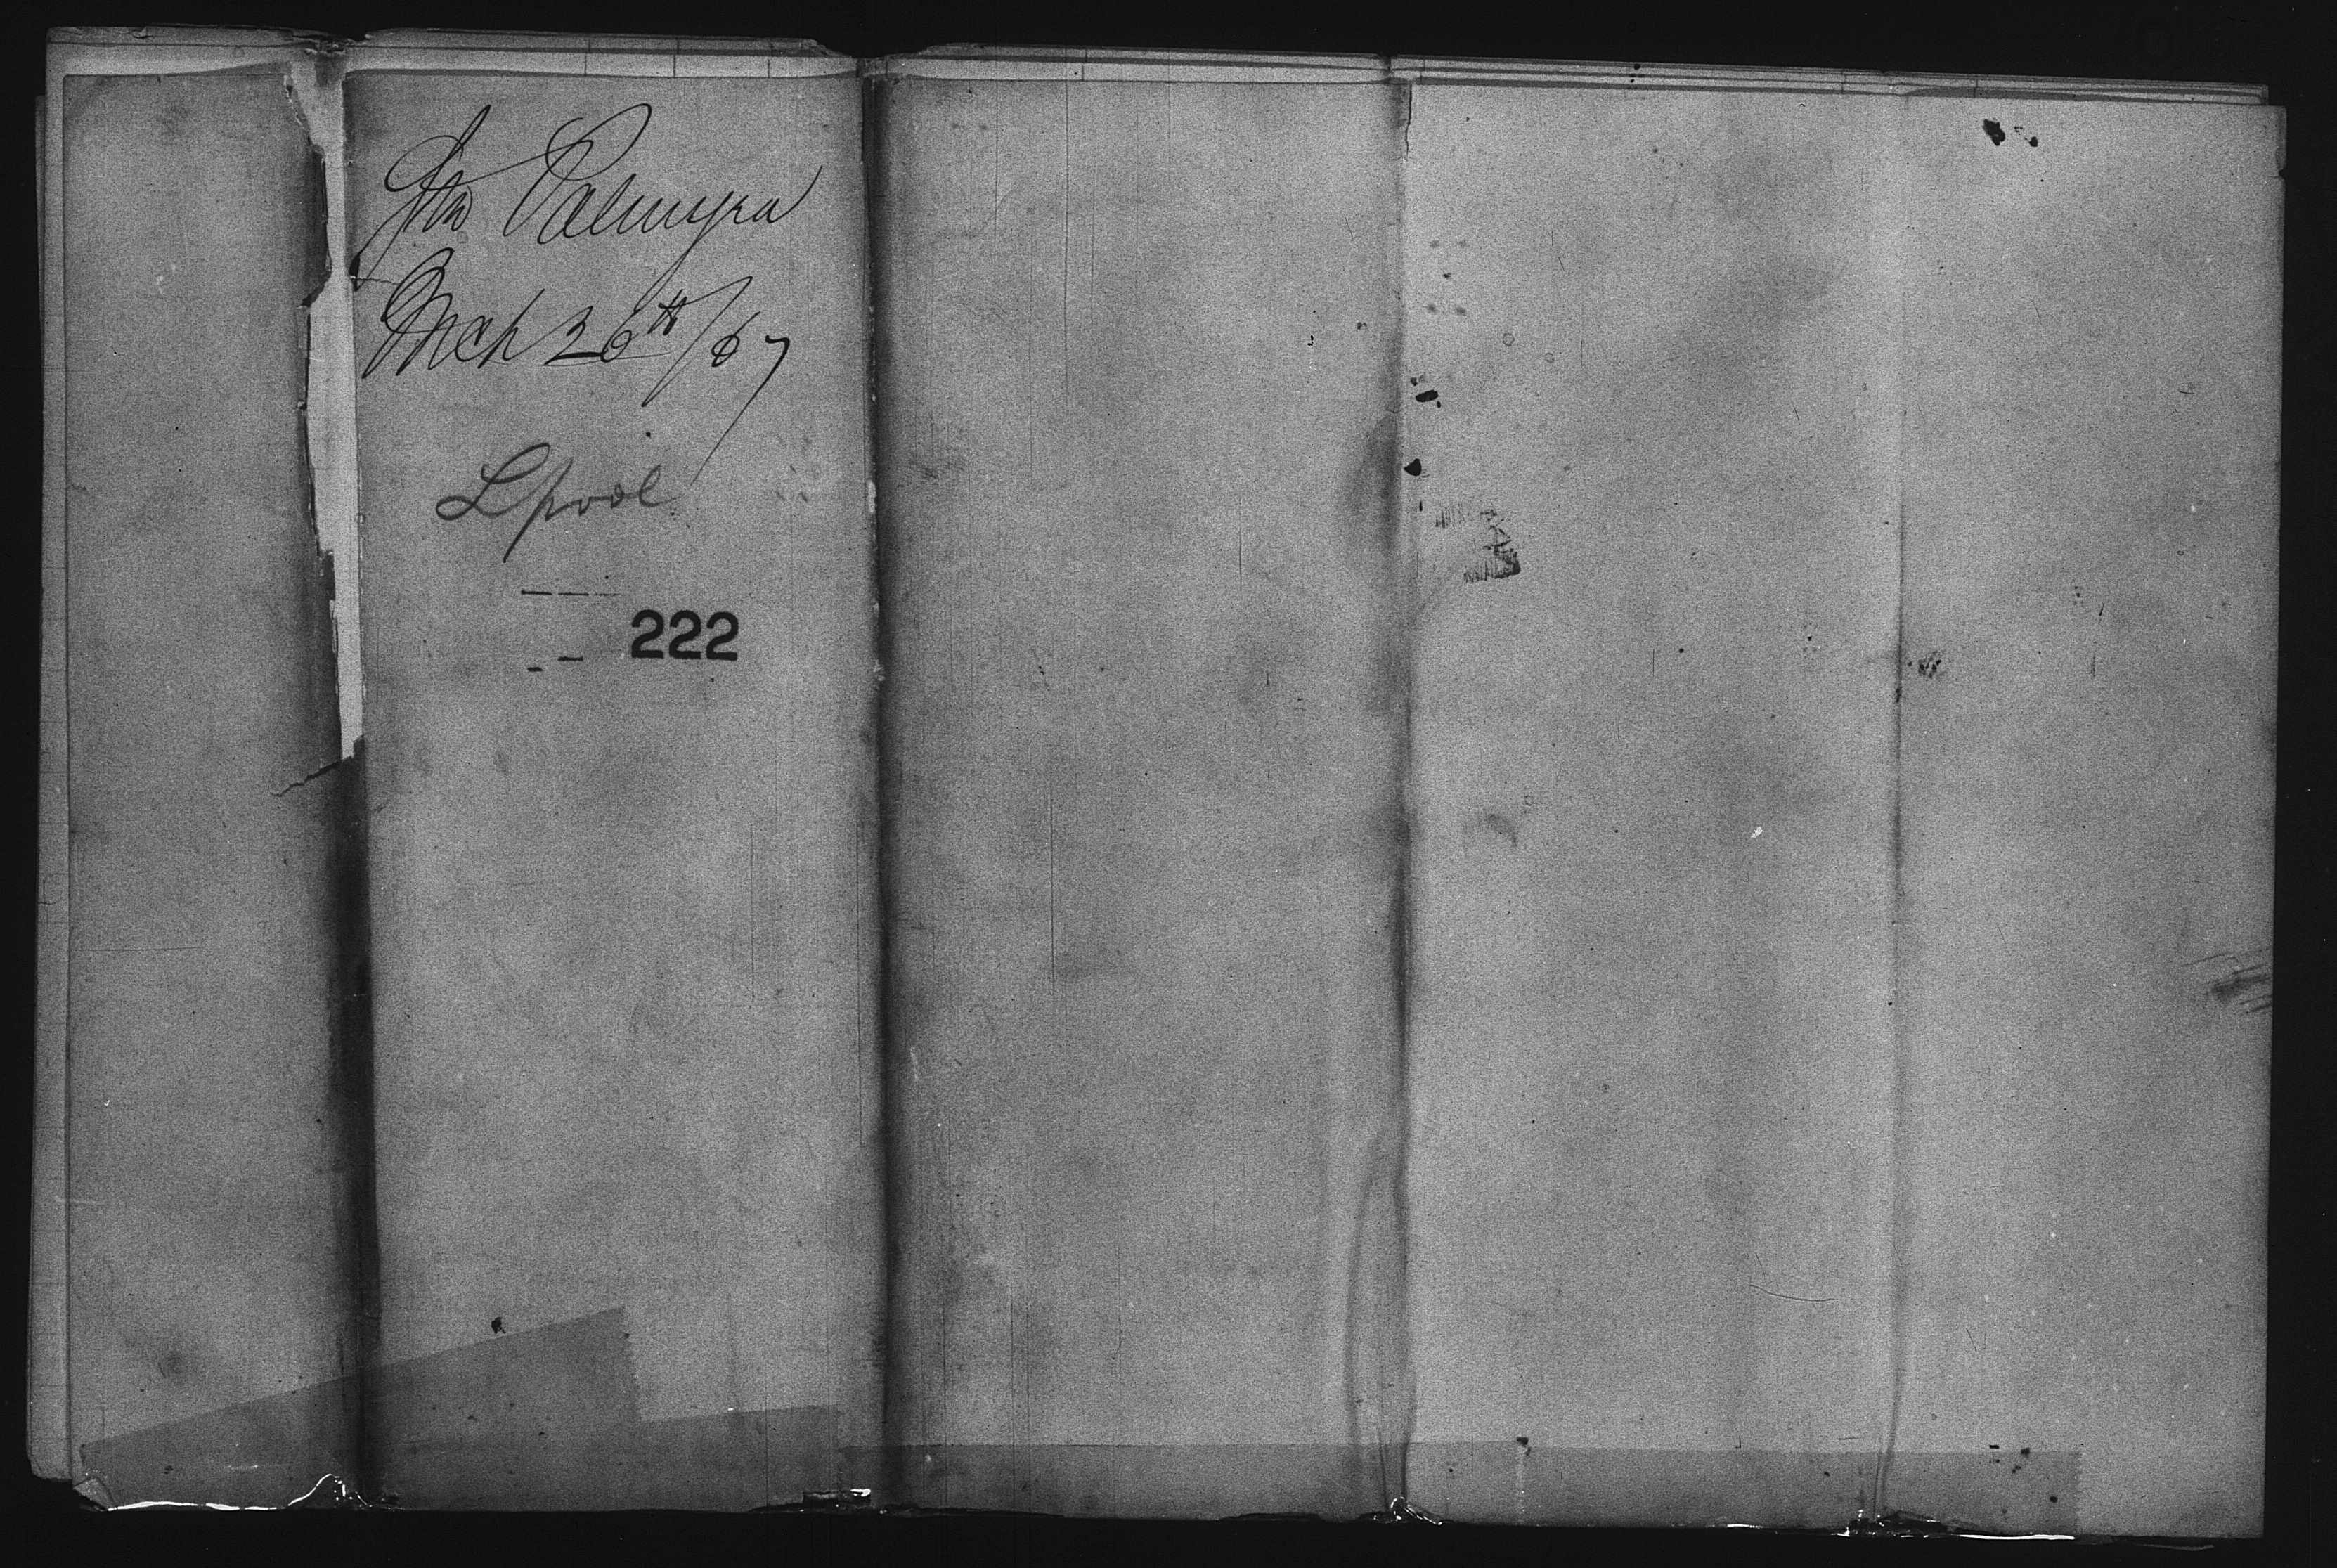 Str Palmyra
Mch 26th/67
Lpool
222